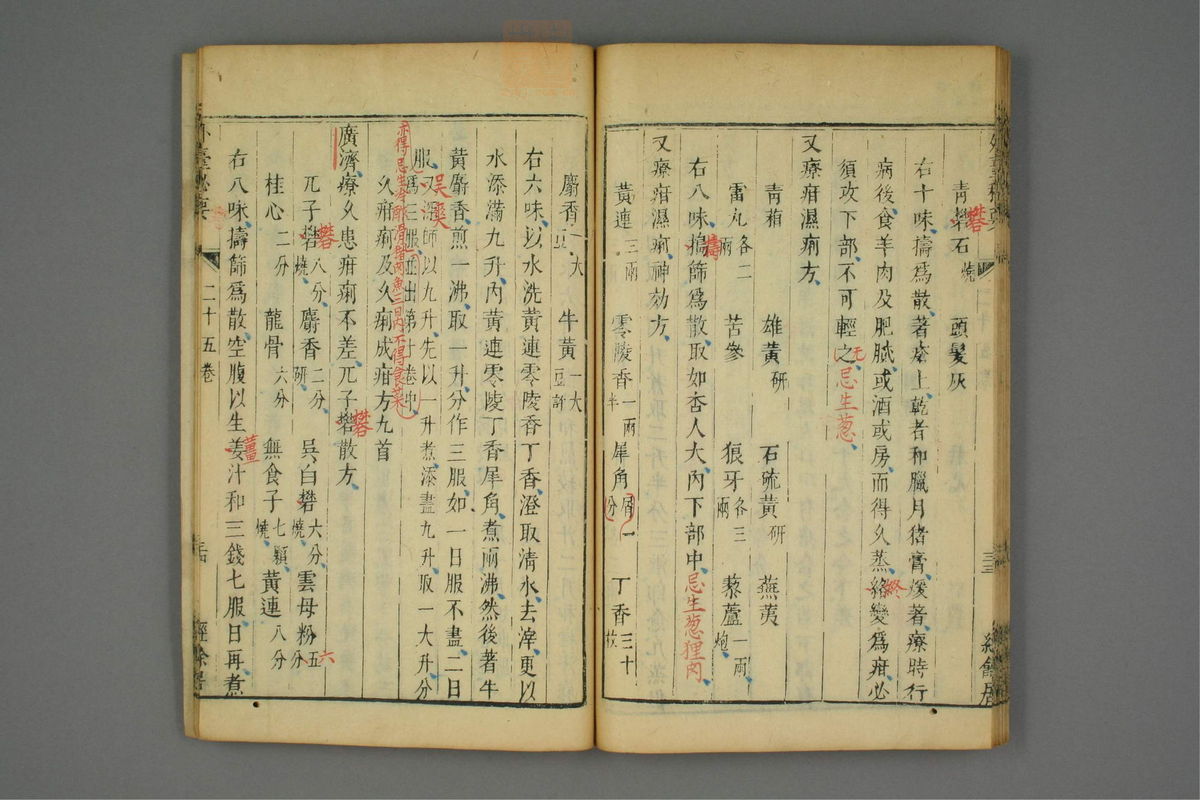 青礬石燒 頭髮灰
礬
右十味擣為散著瘡上乾者和臘月猪膏煖著療時行
病後食羊肉及肥膩或酒或房而得久蒸絡變為疳必
終
須攻下部不可輕之忌生葱
无
又療疳濕痢方
青葙 雄黃研 石硫黃研 燕荑
雷丸各二兩 苦參 狼牙各三兩 藜蘆一兩炮
右八味搗篩為散取如杏人大內下部中忌生葱狸肉
擣
又療疳濕痢神効方
黃連三兩 零陵香一兩半 犀角屑一分 丁香三十枚
麝香一大豆 牛黃一大豆許
右六味以水洗黃連零陵香丁香澄取清水去滓更以
水添滿九升內黃連零陵丁香犀角煮兩沸然後著牛
黃麝香煎一沸取一升分作三服如一日服不盡二日
服又深師以九升先以一升煮添盡九升取一大升分
為三服並出第卷中
吴
亦得忌生冷酢滑猪肉魚三日內不得食菜
久疳痢及久痢成疳方九首
廣濟療久患疳痢不差兀子礬散方
礬
兀子礬八分燒 麝香二分研 吳白礬六分燒 雲母粉五分
礬
六
桂心二分 龍骨六分 無食子七顆燒 黃連八分
右八味擣篩為散空腹以生姜汁和三錢七服日再煮
薑
外臺秘要
二十五卷
經餘居